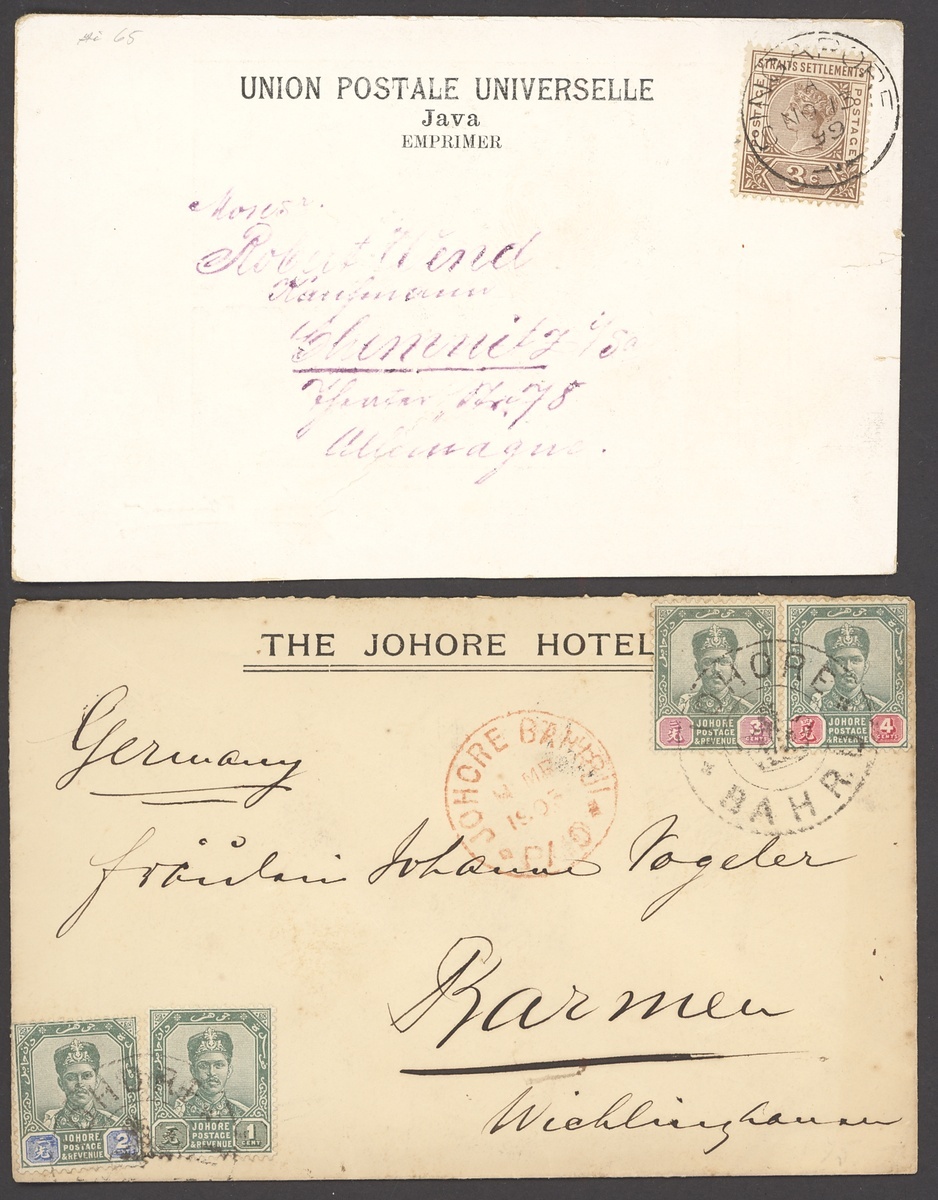 UNION POSTALE UNIVERSELLE
Java
EMPRIMER
STRAITS SETTLEMENTS
POSTAGE POSTAGE
3c
Robert Wend
Kaufmann
Chemnitz i/Sa
Theater Str. 78
Allemagne.
THE JOHORE HOTEL
JOHORE
POSTAGE
&REVENUE
3
CENTS
JOHORE
POSTAGE
&REVENUE
4
CENTS
JOHORE
BAHR
Germany
JOHORE BAHRU
PAID
Fräulein Johanne Vogeler
Barmen
Wichlinghausen
JOHORE
POSTAGE
&REVENUE
2
JOHORE
POSTAGE
&REVENUE
1
CENT
JOHORE